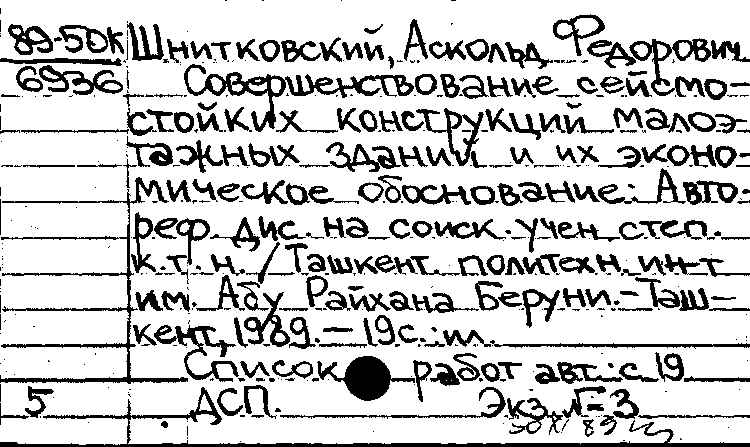 89-50к Шнитковский, Аскольд Федорович
6936 Совершенствование сейсмо-
стойких конструкций малоэ-
тажных зданий и их эконо-
мическое обоснование: Авто-
реф. дис. на соиск. учен. степ.
к.т.н. / Ташкент. политехн. ин-т
им. Абу Райхана Беруни.-Таш-
кент, 1989.-19с.:ил.
Список работ авт.:с.19
5 ДСП. Экз. №=3